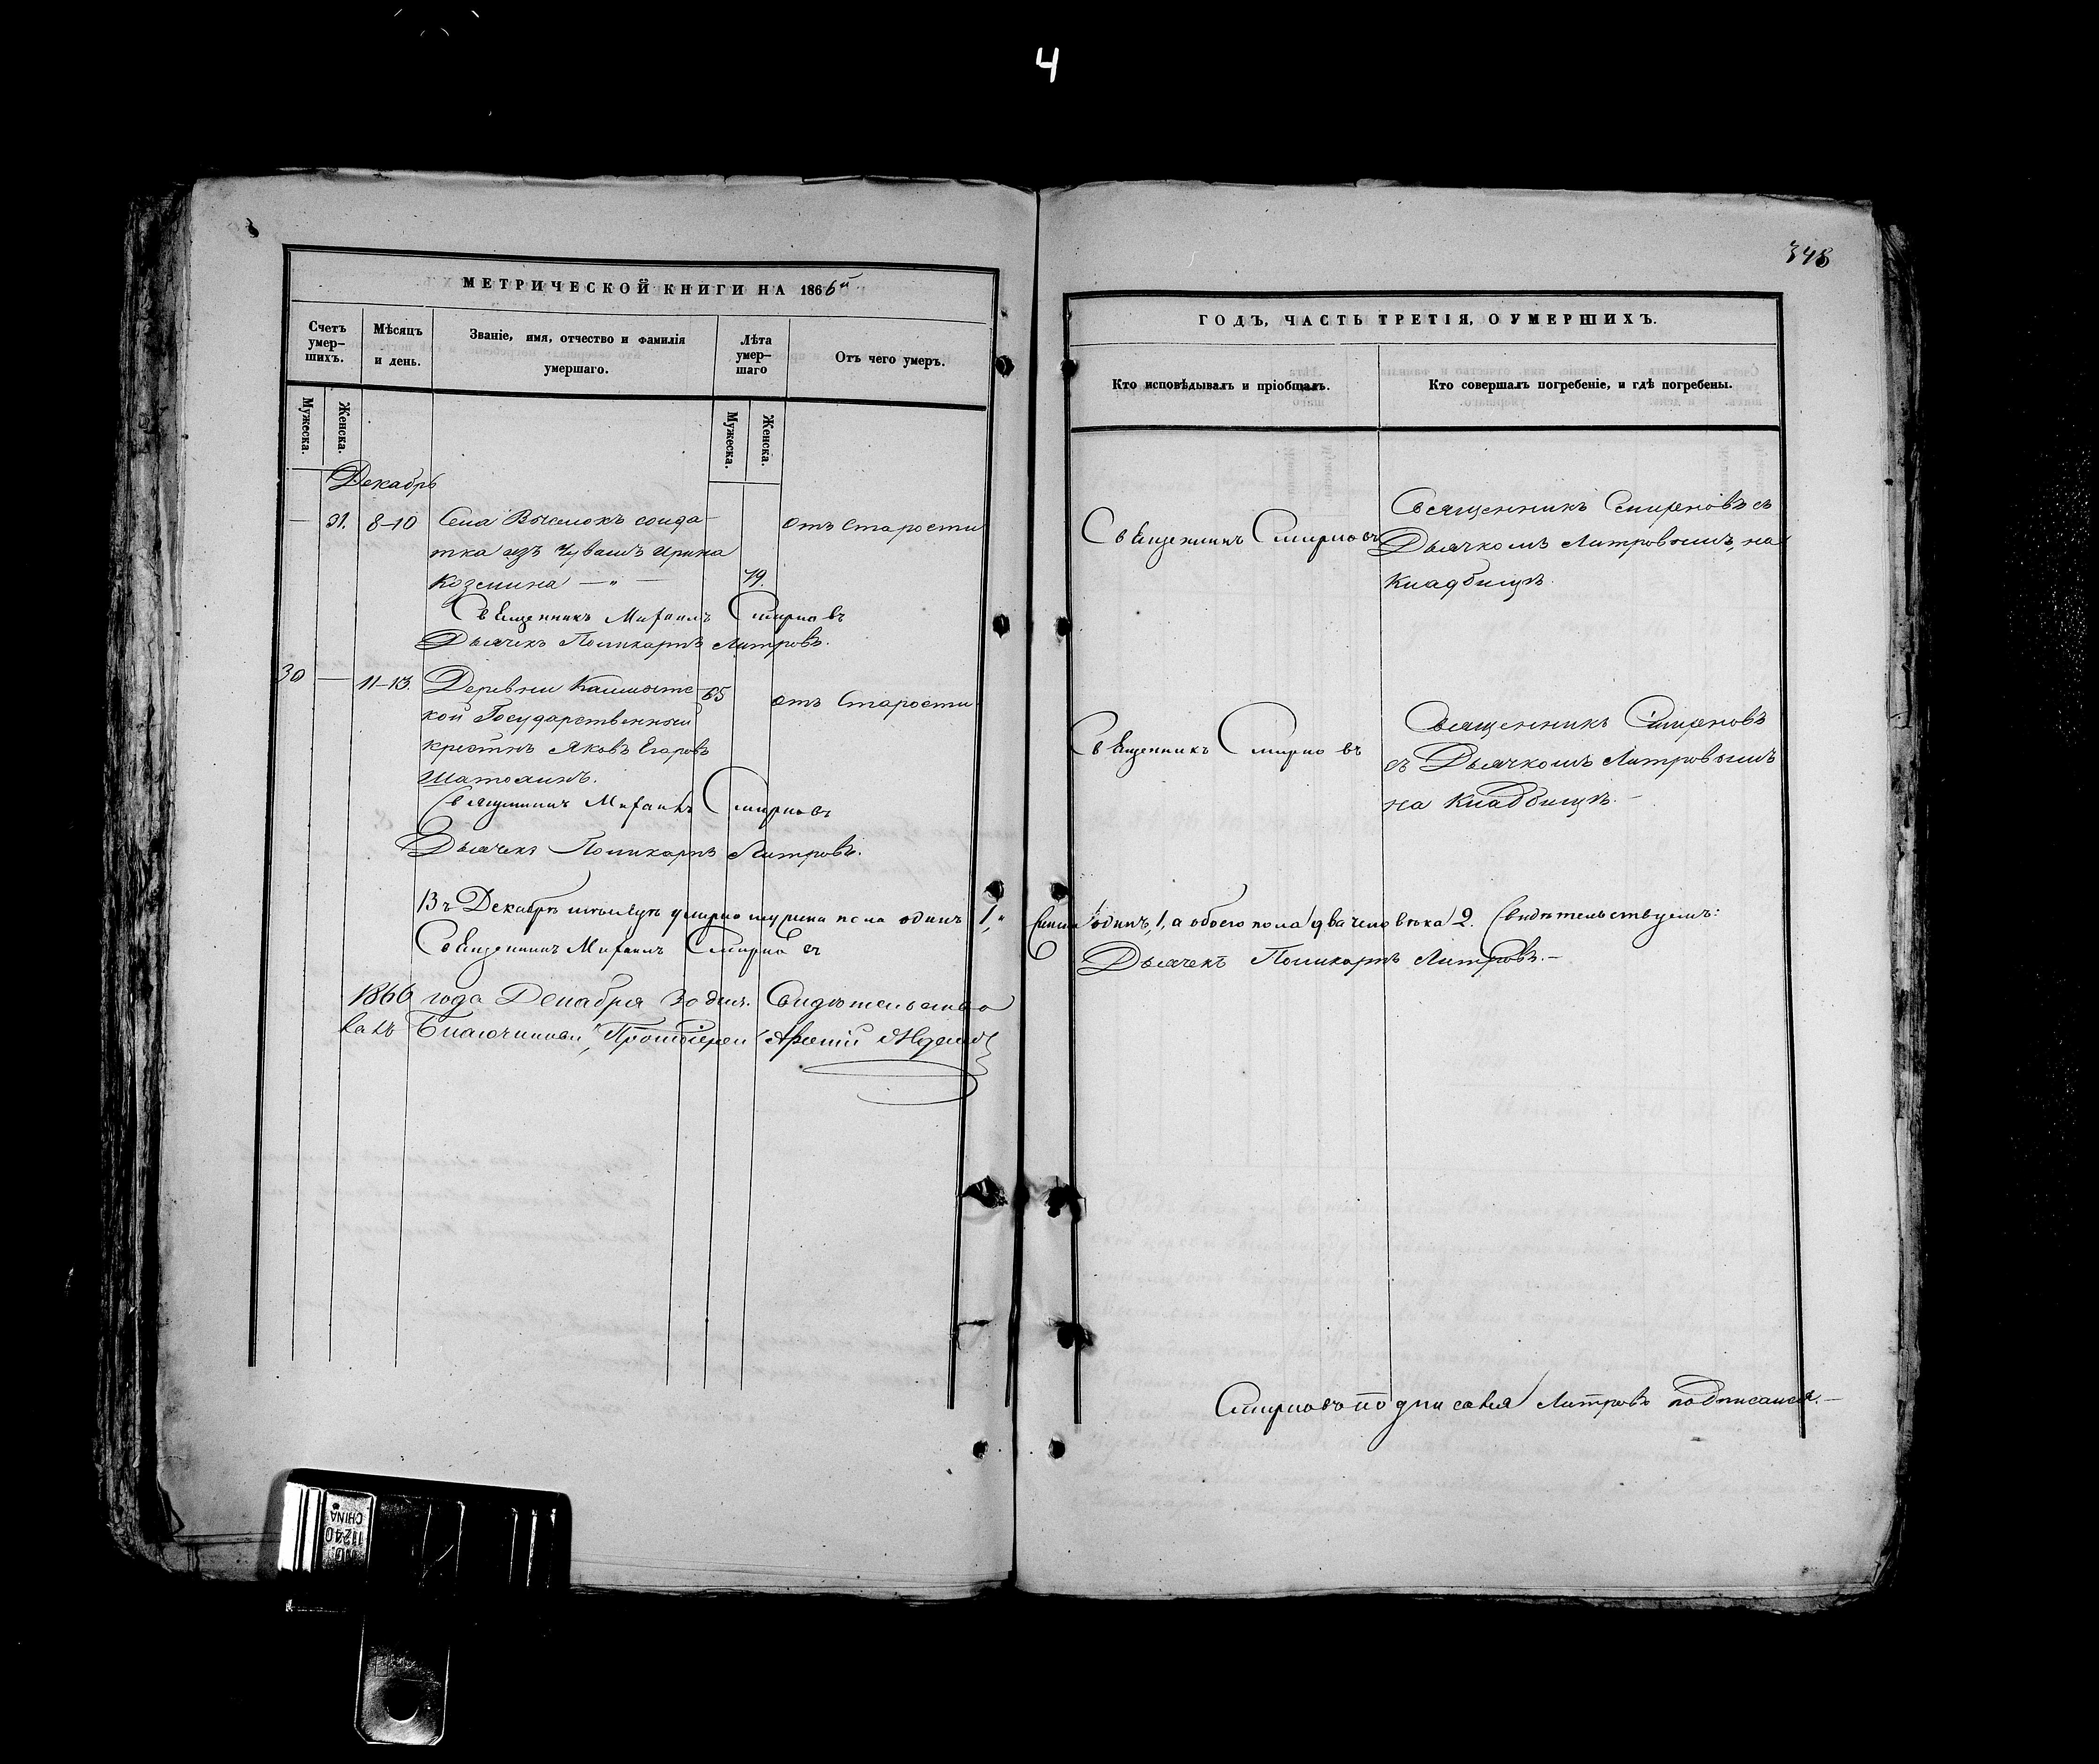 4
348
МЕТРИЧЕСКОЙ КНИГИ НА 1866й
Счетъ умер-шихъ.
Мѣсяцъ и день.
Званіе, имя, отчество и фамилія умершаго.
Лѣта умер-шаго
Отъ чего умеръ.
Мужеска.
Женска.
Мужеска.
Женска.
Декабрь
— 21. 8–10 Села солда-
отъ старости
тка изъ Чувашъ Ирина
Козмина — „ — 79.
Священникъ Михаилъ Смирновъ
Дьячекъ Поликарпъ Литровъ.
30 — 11–13. Деревни 65 отъ старости
кой Государственный
крестнъ Яковъ Егоровъ
Шатохинъ.
Священникъ Михаилъ Смирновъ
Дьячекъ Поликарпъ Литровъ.
Въ Декабрѣ мѣсяцѣ умерло мужска пола одинъ 1, „
Священникъ Михаилъ Смирновъ
1866 года Декабря 30 дня. Свидѣтельство
валъ Благочинный, Протоіерей
ГОДЪ, ЧАСТЬ ТРЕТІЯ, О УМЕРШИХЪ.
Кто исповѣдывалъ и пріобщалъ.
Кто совершалъ погребеніе, и гдѣ погребены.
Священникъ Смирновъ
Священникъ Смирновъ съ
Дьячкомъ Литровымъ, на
кладбищѣ.
Священникъ Смирновъ
Священникъ Смирновъ
съ Дьячкомъ Литровымъ
на кладбищѣ. —
одинъ, 1, а обоего пола два человѣка 2. Свидѣтельствуемъ:
Дьячекъ Поликарпъ Литровъ. —
Смирновъ подписался Литровъ подписался. —
010
11240
CHINA